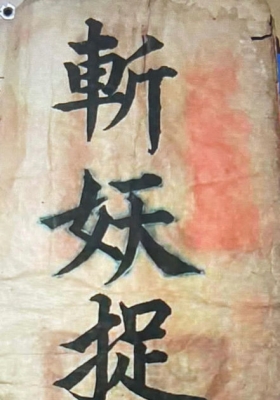 斬妖捉